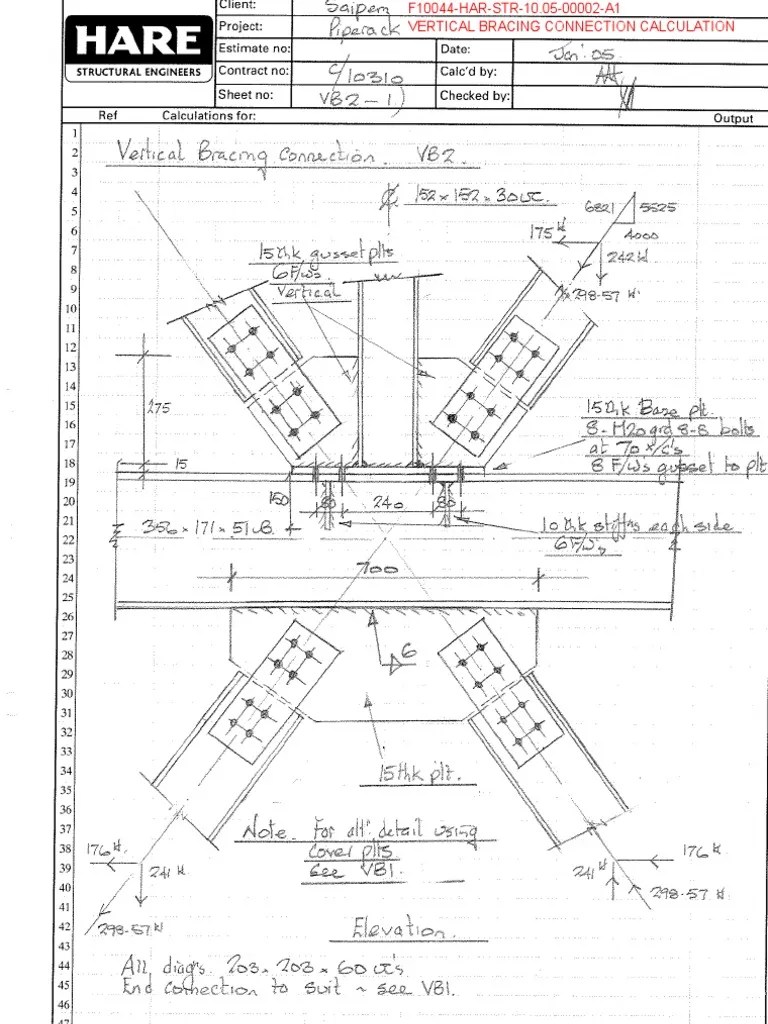 HARE
STRUCTURAL ENGINEERS
Client: Saipem F10044-HAR-STR-10.05-00002-A1
Project: Piperack VERTICAL BRACING CONNECTION CALCULATION
Estimate no: Date: Jan' 05.
Contract no: C/10310 Calc'd by:
Sheet no: VB2-1) Checked by:
Ref Calculations for: Output
1
2
3
4
5
6
7
8
9
10
11
12
13
14
15
16
17
18
19
20
21
22
23
24
25
26
27
28
29
30
31
32
33
34
35
36
37
38
39
40
41
42
43
44
45
46
47
Vertical Bracing Connection. VB2.
152 x 152 x 30 UC.
6821 5525
4000
175 kN
242 kN
298-57 kN.
15 thk gusset plts
6 F/Ws.
Vertical
275
15
15 thk Base plt.
8-M20 grd 8-8 bolts
at 70 x/c's
8 F/W's gusset to plt
150 80 240 80
356 x 171 x 51 UB.
10 thk stiffns each side
6 F/W's
700
6
15 thk plt.
Note. For alt' detail using
cover plts
See VB1.
176 kN
241 kN
298-57 kN
176 kN
241 kN
298-57 kN
Elevation.
All diag's. 203 x 203 x 60 UC's
End connection to suit ~ see VB1.